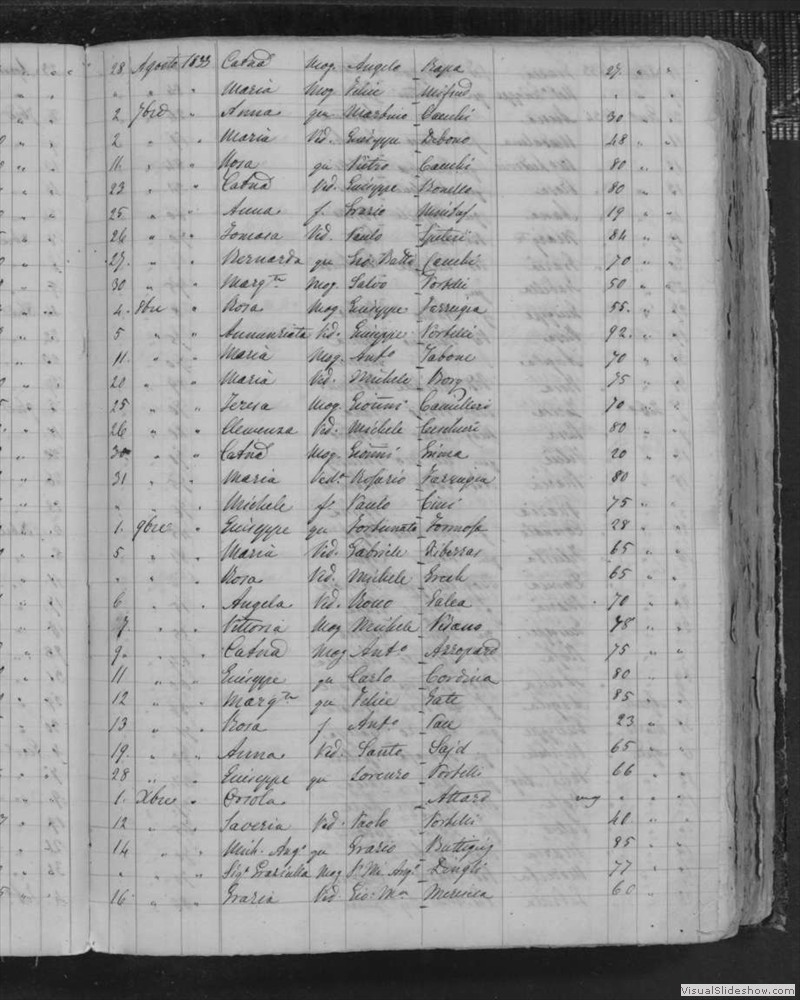 28 Agosto 1833 Catna Mog. Angelo Rapa 27
" " " Maria Mog Felice Mifsud "
2 7bre " Anna qu Martino Camileri 30
2 " " Maria Vid. Giuseppe Debono 48
11 " " Rosa qu Pietro 80
23 " " Catna Vid. Giuseppe Bonello 80
25 " " Anna f. Grazio 19
26 " " Tomasa Vid. Paulo Spiteri 84
27 " " Bernarda qu Gio: Batta 70
30 " " Margta Mog. Salvo Portelli 50
4 8bre " Rosa Mog. Giuseppe Farrugia 55
5 " " Annunziata Vid. Giuseppe Portelli 92
11 " " Maria Mog. Anto Tabone 70
20 " " Maria Vid. Michele Borg 75
25 " " Teresa Mog Gionni Camilleri 70
26 " " Clemenza Vid. Michele 80
30 " " Catna Mog Gionni Grima 20
31 " " Maria Vid. Rosario Farrugia 80
" " Michele f. Paulo Cini 75
1 9bre " Giuseppe qu Fortunato Formosa 28
5 " " Maria Vid. Gabriele Ziberras 65
" " " Rosa Vid. Michele Grech 65
6 " " Angela Vid. Bono Galea 70
7 " " Vittoria Mog Michele Pisano 78
9 " " Catna Mog Anto Azzopard 75
11 " " Giuseppe qu Carlo Cordina 80
12 " " Margta qu Felice Gatt 85
13 " " Rosa f Anto Pace 23
19 " " Anna Vid. Santo Sajd 65
28 " " Giuseppe qu Lorenzo Portelli 66
1 Xbre " Orsola Attard
12 " " Saveria Vid. Paolo Portelli 40
14 " " Mich. Ango qu Grazio Buttigig 85
" " " Siga Graziulla Mog Dingli 77
16 " " Grazia Vid. Gio: Ma Mercieca 60
VisualSlideshow.com